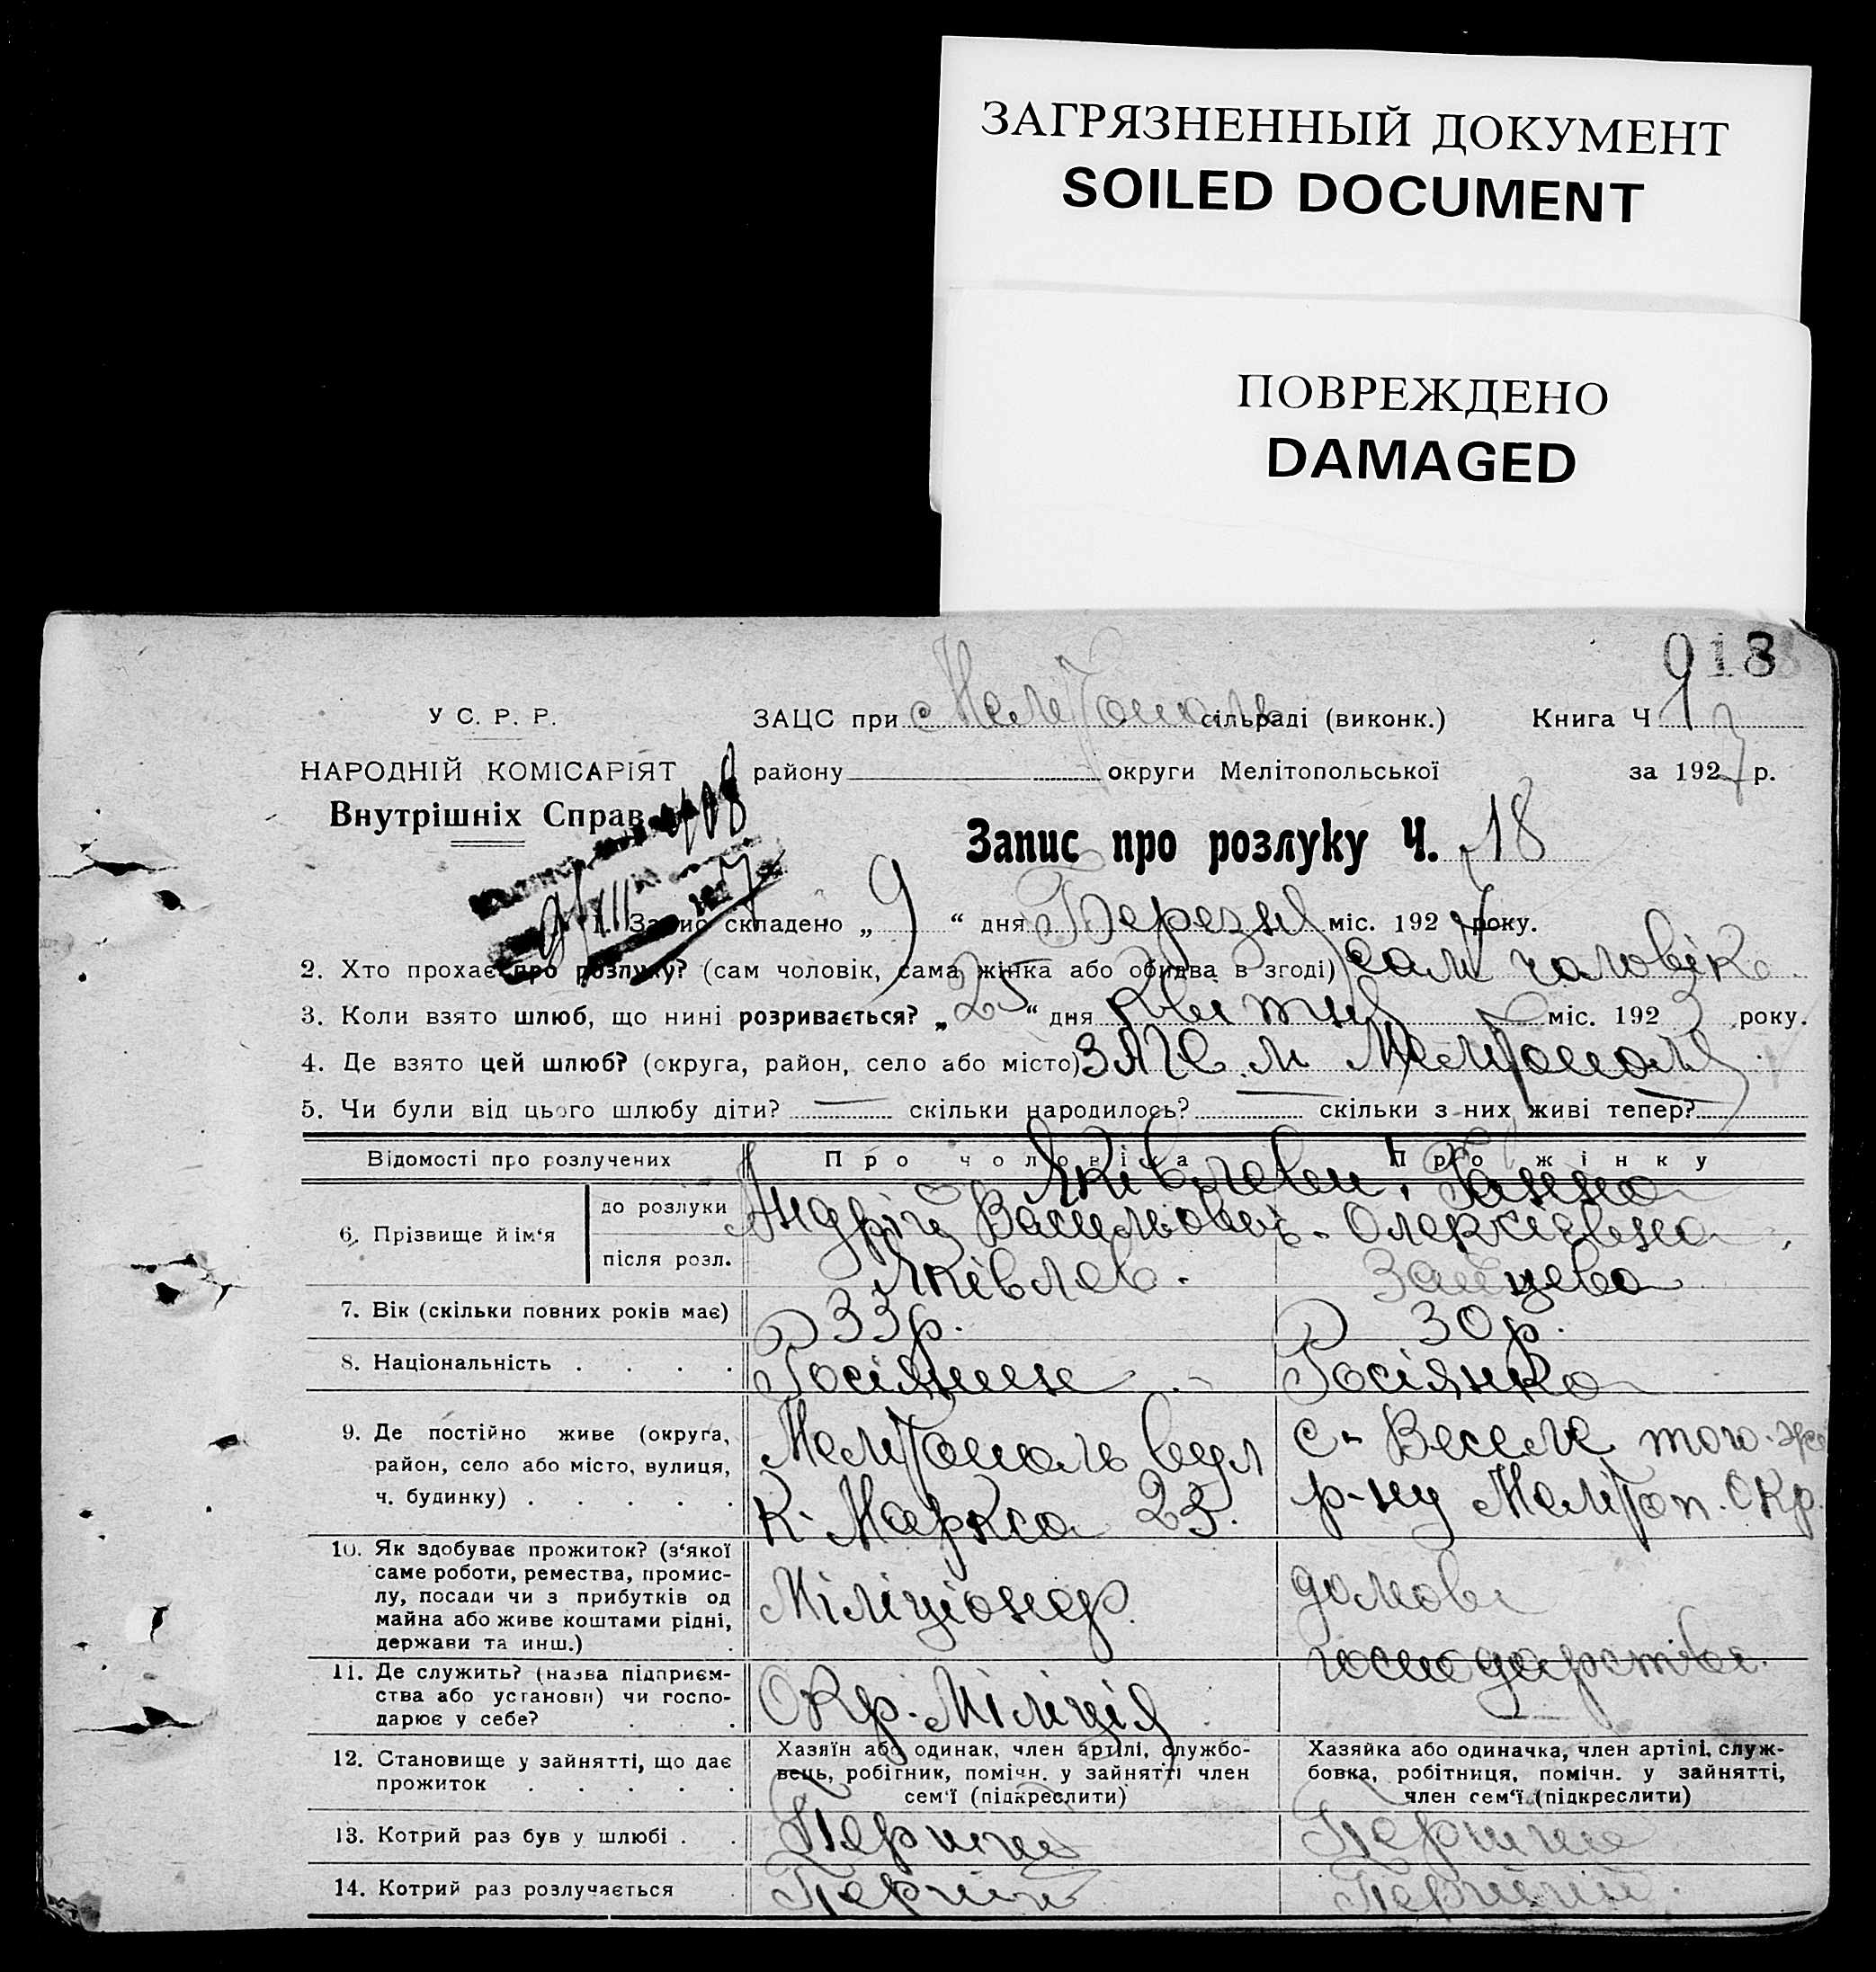 ЗАГРЯЗНЕННЫЙ ДОКУМЕНТ
SOILED DOCUMENT
ПОВРЕЖДЕНО
DAMAGED
018
У С. Р. Р.
НАРОДНІЙ КОМІСАРІЯТ
Внутрішніх Справ
ЗАЦС при Мелітополь сільраді (виконк.) Книга Ч 1
району округи Мелітопольської за 1927 р.
Запис про розлуку Ч. 18
1. Запис складено „ 9 “ дня Березня міс. 1927 року.
2. Хто прохає про розлуку? (сам чоловік, сама жінка або обидва в згоді) сам чоловік
3. Коли взято шлюб, що нині розривається? „ 25 “ дня Квітня міс. 1923 року.
4. Де взято цей шлюб? (округа, район, село або місто) ЗАГС м Мелітополь
5. Чи були від цього шлюбу діти? — скільки народилось? — скільки з них живі тепер? —
Відомості про розлучених Про чоловіка Про жінку
6. Прізвище й ім‘я
до розлуки
Яківлеви, Ганна
Андрій Васильович. Олексієвна,
після розл. Яківлев. Зайцева
7. Вік (скільки повних років має) 33 р. 30 р.
8. Національність Росіянин Росіянка
9. Де постійно живе (округа, район, село або місто, вулиця, ч. будинку)
Мелітополь вул
К. Маркса 25.
с. Веселе того-же
р-ну Мелітоп. Окр.
10. Як здобуває прожиток? (з‘якої
саме роботи, ремества, промис-
лу, посади чи з прибутків од
майна або живе коштами рідні,
держави та инш.)
Міліціонер.
домове
господарство.
11. Де служить? (назва підприєм-
ства або установи) чи госпо-
дарює у себе?
Окр. Міліція
12. Становище у зайнятті, що дає
прожиток
Хазяїн або одинак, член артілі, службо-
вець, робітник, помічн. у зайнятті член
сем‘ї (підкреслити)
Хазяйка або одиначка, член артілі, служ-
бовка, робітниця, помічн. у зайнятті,
член сем‘ї (підкреслити)
13. Котрий раз був у шлюбі Перший Перший
14. Котрий раз розлучається Перший Перший.